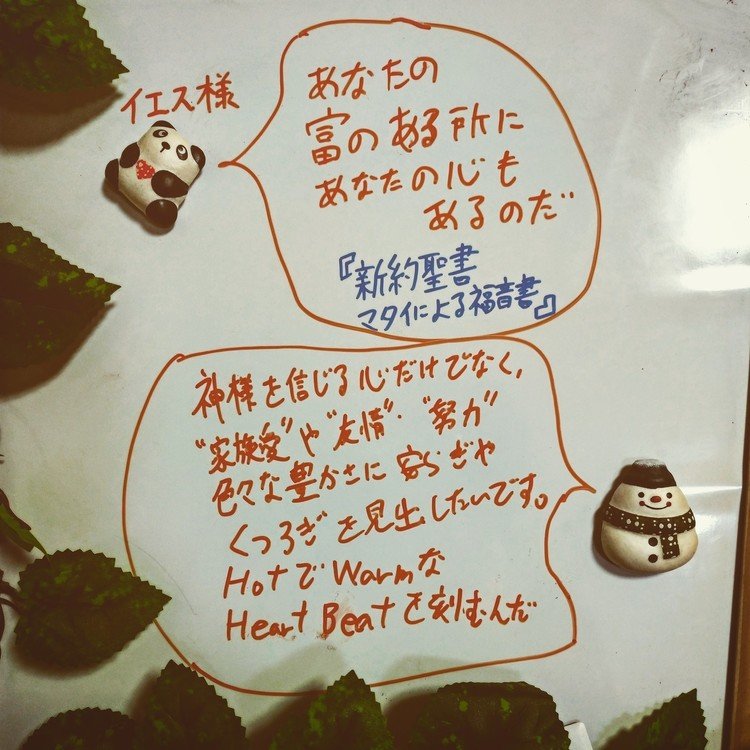 イエス様
あなたの
富のある所に
あなたの心も
あるのだ
『新約聖書
マタイによる福音書』
神様を信じる心だけでなく、
"家族愛"や"友情"・"努力"
色々な豊かさに安らぎや
くつろぎを見出したいです。
HotでWarmな
Heart Beatを刻むんだ